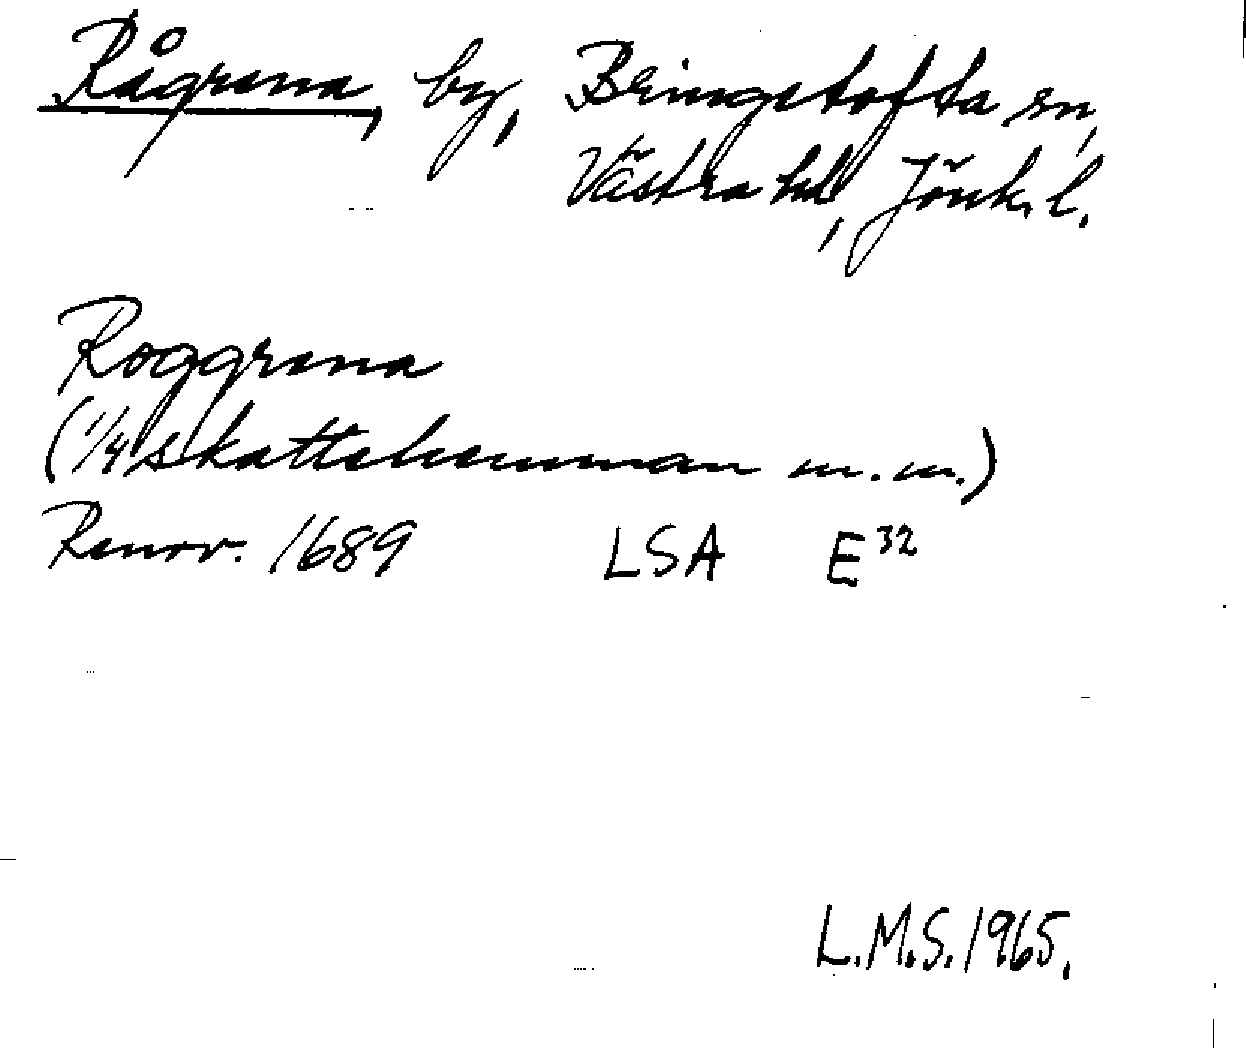 Rågrena, by, Bringetofta sn,
Västra hd, Jönk. l.
Roggrena
(1/4 skattehemman m.m.)
Renov. 1689 LSA E³²
L.M.S. 1965.